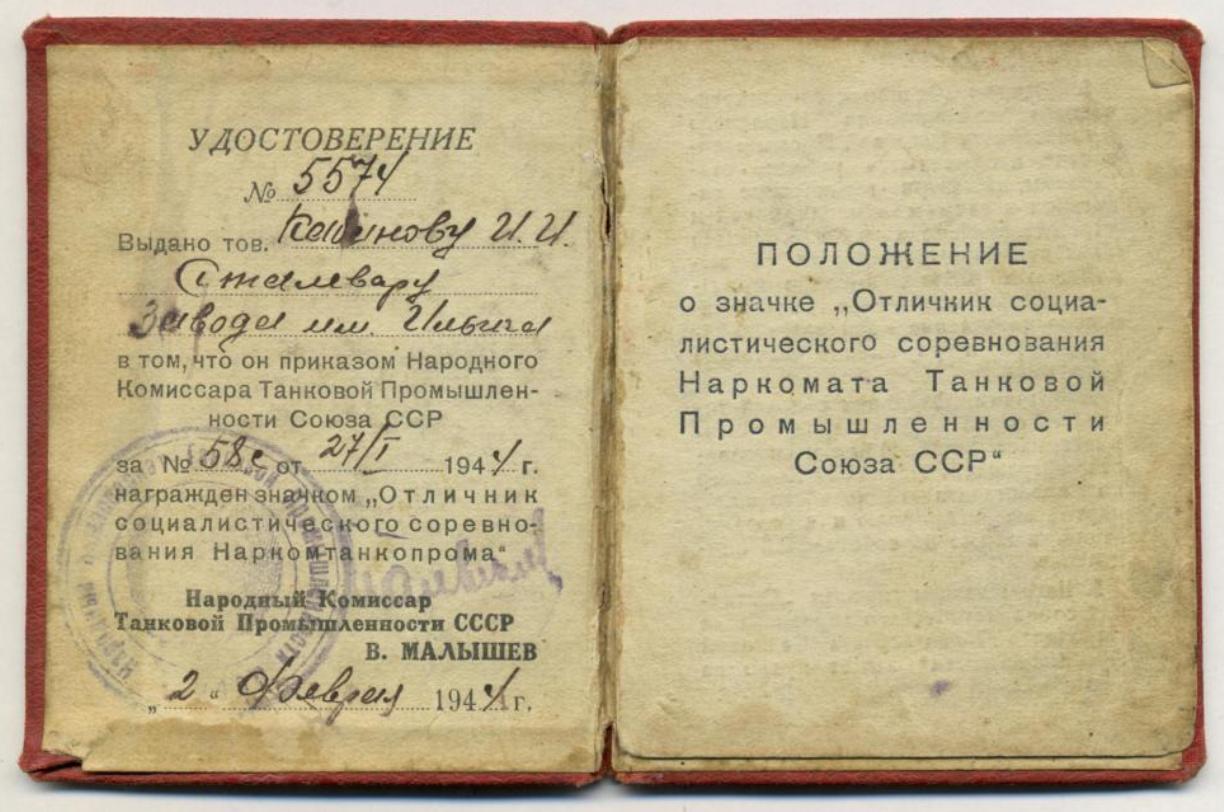 УДОСТОВЕРЕНИЕ
№ 5574
Выдано тов. И. И.
Сталевару
Завода им. Ильича
в том, что он приказом Народного
Комиссара Танковой Промышлен-
ности Союза ССР
за № 58с от 27/I 1944 г.
награжден значком „Отличник
социалистического соревно-
вания Наркомтанкопрома“
Народный Комиссар
Танковой Промышленности СССР
В. МАЛЫШЕВ
„2“ Февраля 1944 г.
ПОЛОЖЕНИЕ
о значке „Отличник социа-
листического соревнования
Наркомата Танковой
Промышленности
Союза ССР“